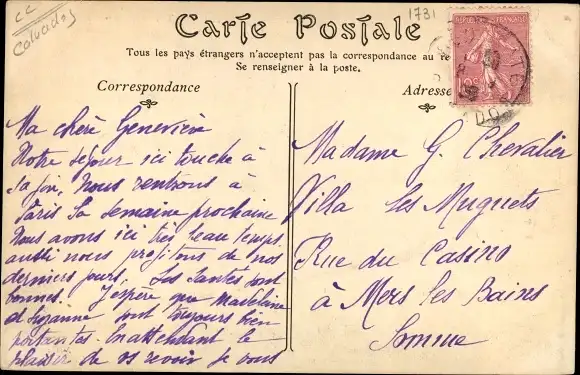 cc
Calvados
1731
Carte Postale
Tous les pays étrangers n'acceptent pas la correspondance au re
Se renseigner à la poste.
Correspondance
Ma chère Geneviève
Notre séjour ici touche à
sa fin. Nous rentrons à
Paris la semaine prochaine
Nous avons ici très beau temps
aussi nous profitons de nos
derniers jours. Les santés sont
bonnes. J'espère que Madeleine
et Suzanne sont toujours bien
portantes. En attendant le
plaisir de vs revoir je vous
Adresse
REPUBLIQUE FRANÇAISE
Madame G. Chevalier
Villa les Muguets
Rue du Casino
à Mers les Bains
Somme